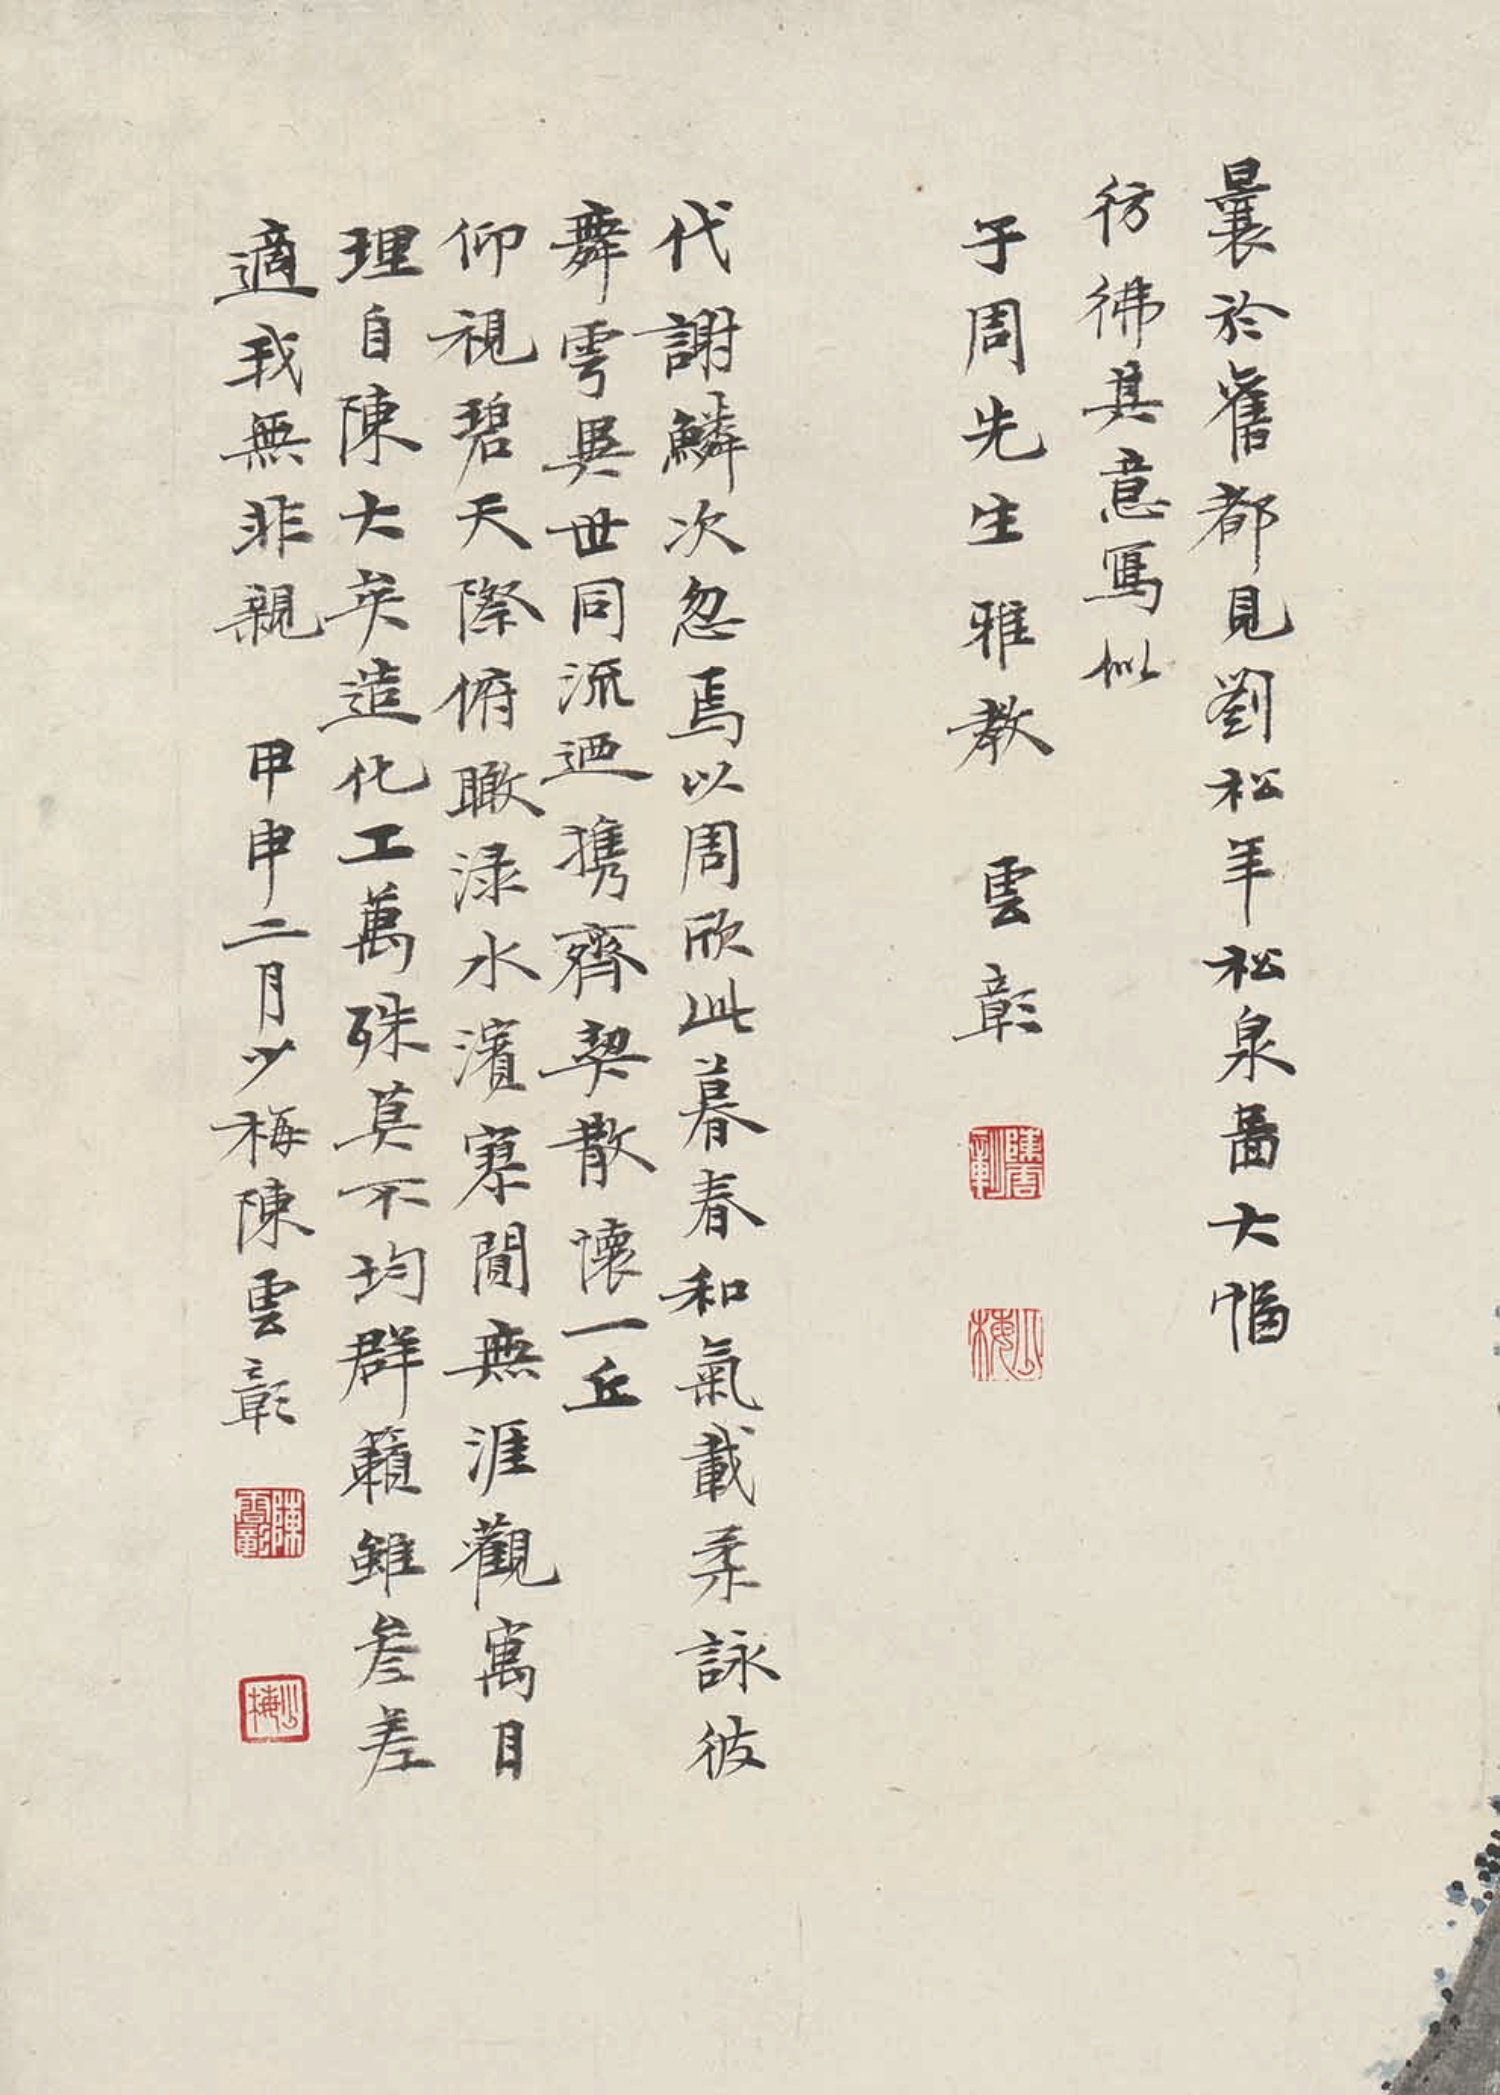 曩於舊都見劉松年松泉啚大幅
彷彿其意寫似
子周先生雅教 雲彰
陳雲彰
少梅
代謝鱗次忽焉以周欣此暮春和氣載柔詠彼
舞雩異世同流迺携齊契散懷一丘
仰視碧天際俯瞰淥水濱寥閴無涯觀寓目
理自陳大矣造化工萬殊莫不均群籟雖參差
適我無非親 甲申二月少梅陳雲彰
陳雲彰
少梅